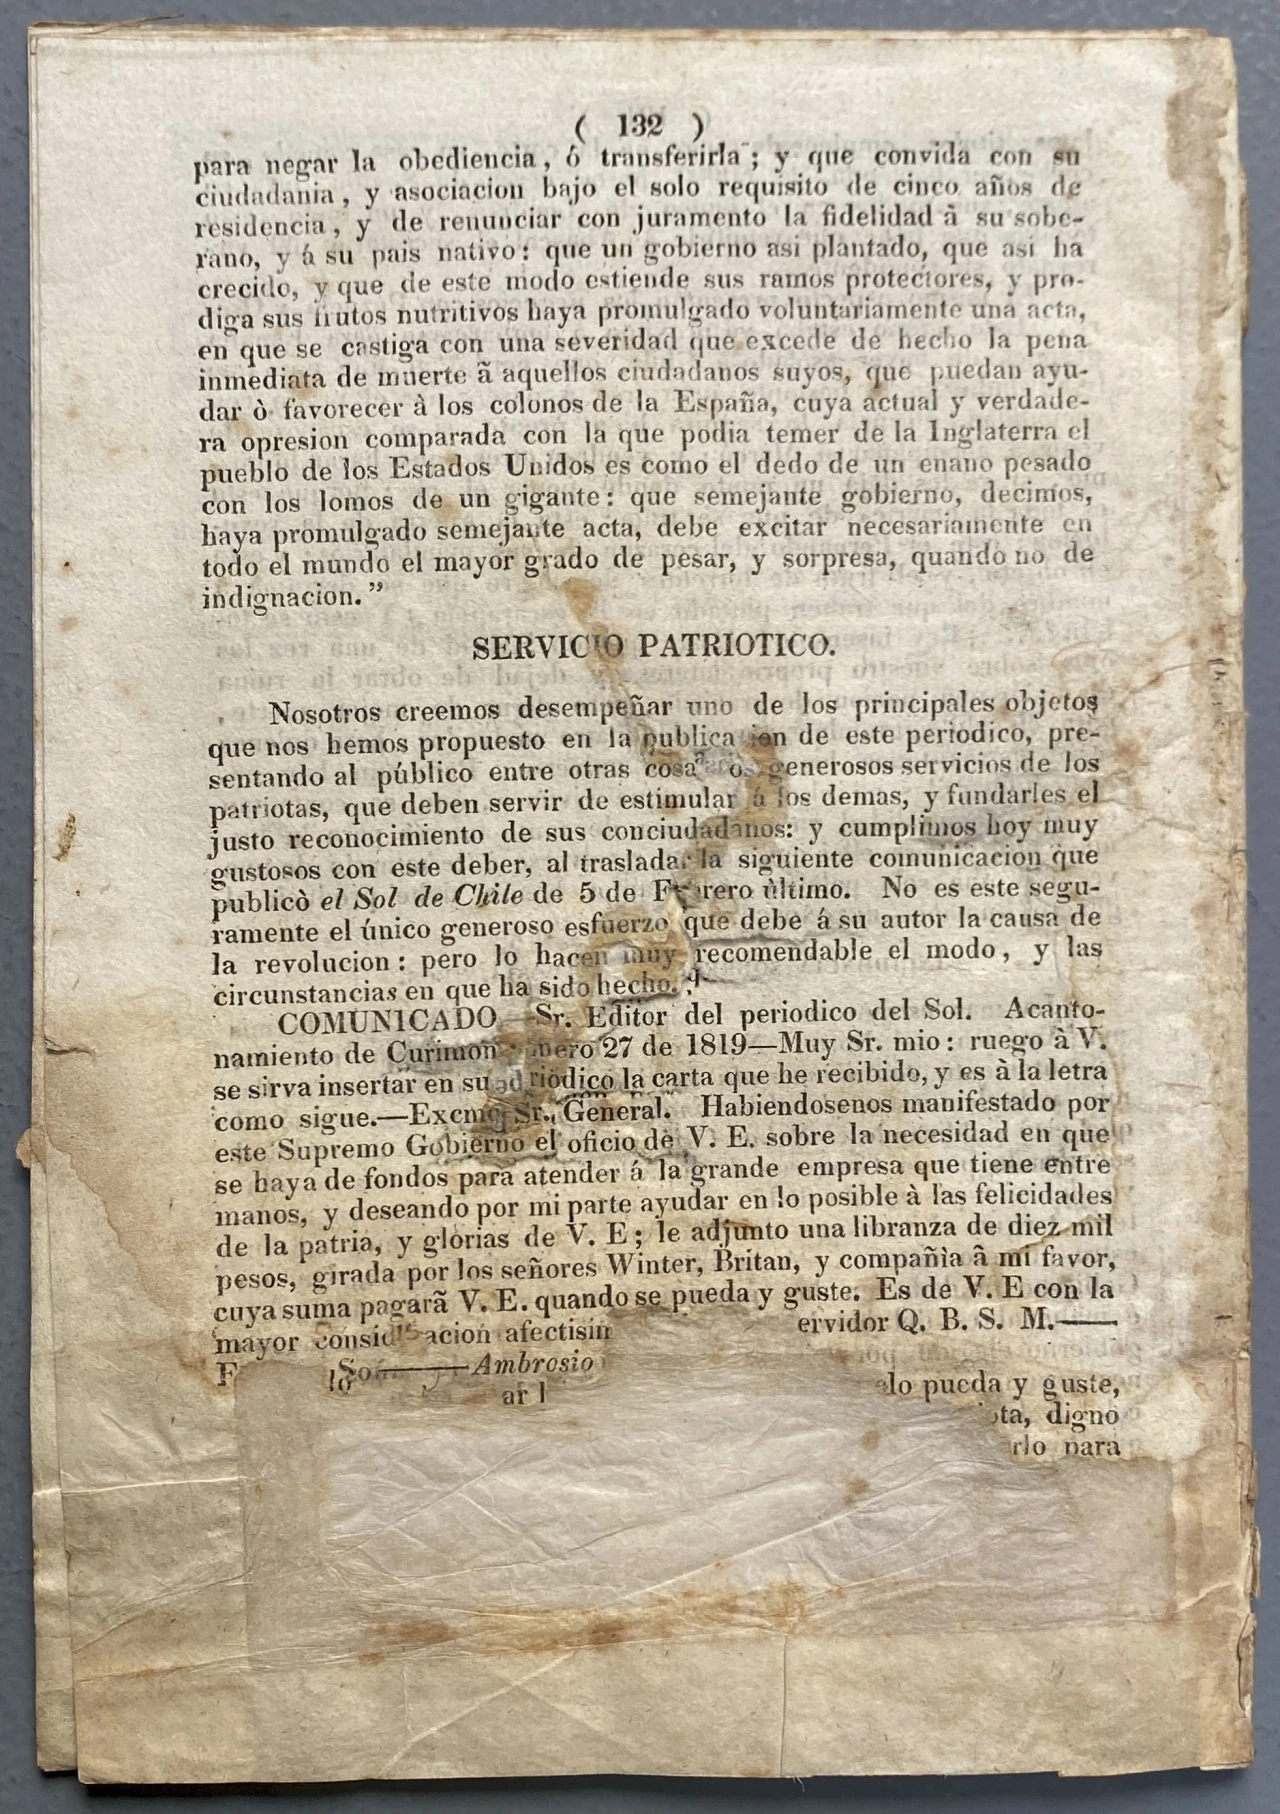 ( 132 )
para negar la obediencia, ó transferirla; y que convida con su
ciudadania, y asociacion bajo el solo requisito de cinco años de
residencia, y de renunciar con juramento la fidelidad â su sobe-
rano, y á su pais nativo: que un gobierno asi plantado, que asi ha
crecido, y que de este modo estiende sus ramos protectores, y pro-
diga sus frutos nutritivos haya promulgado voluntariamente una acta,
en que se castiga con una severidad que excede de hecho la pena
inmediata de muerte ã aquellos ciudadanos suyos, que puedan ayu-
dar ò favorecer à los colonos de la España, cuya actual y verdade-
ra opresion comparada con la que podia temer de la Inglaterra el
pueblo de los Estados Unidos es como el dedo de un enano pesado
con los lomos de un gigante: que semejante gobierno, decimos,
haya promulgado semejante acta, debe excitar necesariamente en
todo el mundo el mayor grado de pesar, y sorpresa, quando no de
indignacion.”
SERVICIO PATRIOTICO.
Nosotros creemos desempeñar uno de los principales objetos
que nos hemos propuesto en la publica ion de este periodico, pre-
sentando al público entre otras cosa os generosos servicios de los
patriotas, que deben servir de estimular á los demas, y fundarles el
justo reconocimiento de sus conciudadanos: y cumplimos hoy muy
gustosos con este deber, al traslada la siguiente comunicacion que
publicò el Sol de Chile de 5 de Febrero ùltimo. No es este segu-
ramente el único generoso esfuerzo que debe á su autor la causa de
la revolucion: pero lo hacen muy recomendable el modo, y las
circunstancias en que ha sido hecho.
COMUNICADO—Sr. Editor del periodico del Sol. Acanto-
namiento de Curimon nero 27 de 1819—Muy Sr. mio: ruego à V.
se sirva insertar en su riodico la carta que he recibido, y es à la letra
como sigue.—Excmo Sr. General. Habiendosenos manifestado por
este Supremo Gobierno el oficio de V. E. sobre la necesidad en que
se haya de fondos para atender á la grande empresa que tiene entre
manos, y deseando por mi parte ayudar en lo posible à las felicidades
de la patria, y glorias de V. E; le adjunto una libranza de diez mil
pesos, girada por los señores Winter, Britan, y compañìa ã mi favor,
cuya suma pagarã V. E. quando se pueda y guste. Es de V. E con la
mayor consid acion afectisim ervidor Q. B. S. M.——
——Ambrosio
ar elo pueda y guste,
ota, digno
rlo para